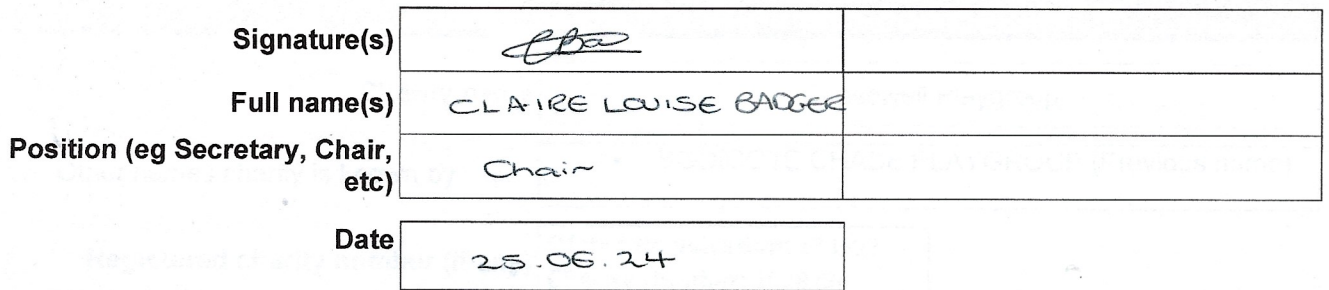 Signature(s)
Full name(s) CLAIRE LOUISE BADGER
Position (eg Secretary, Chair,
etc) Chair
Date 25.06.24